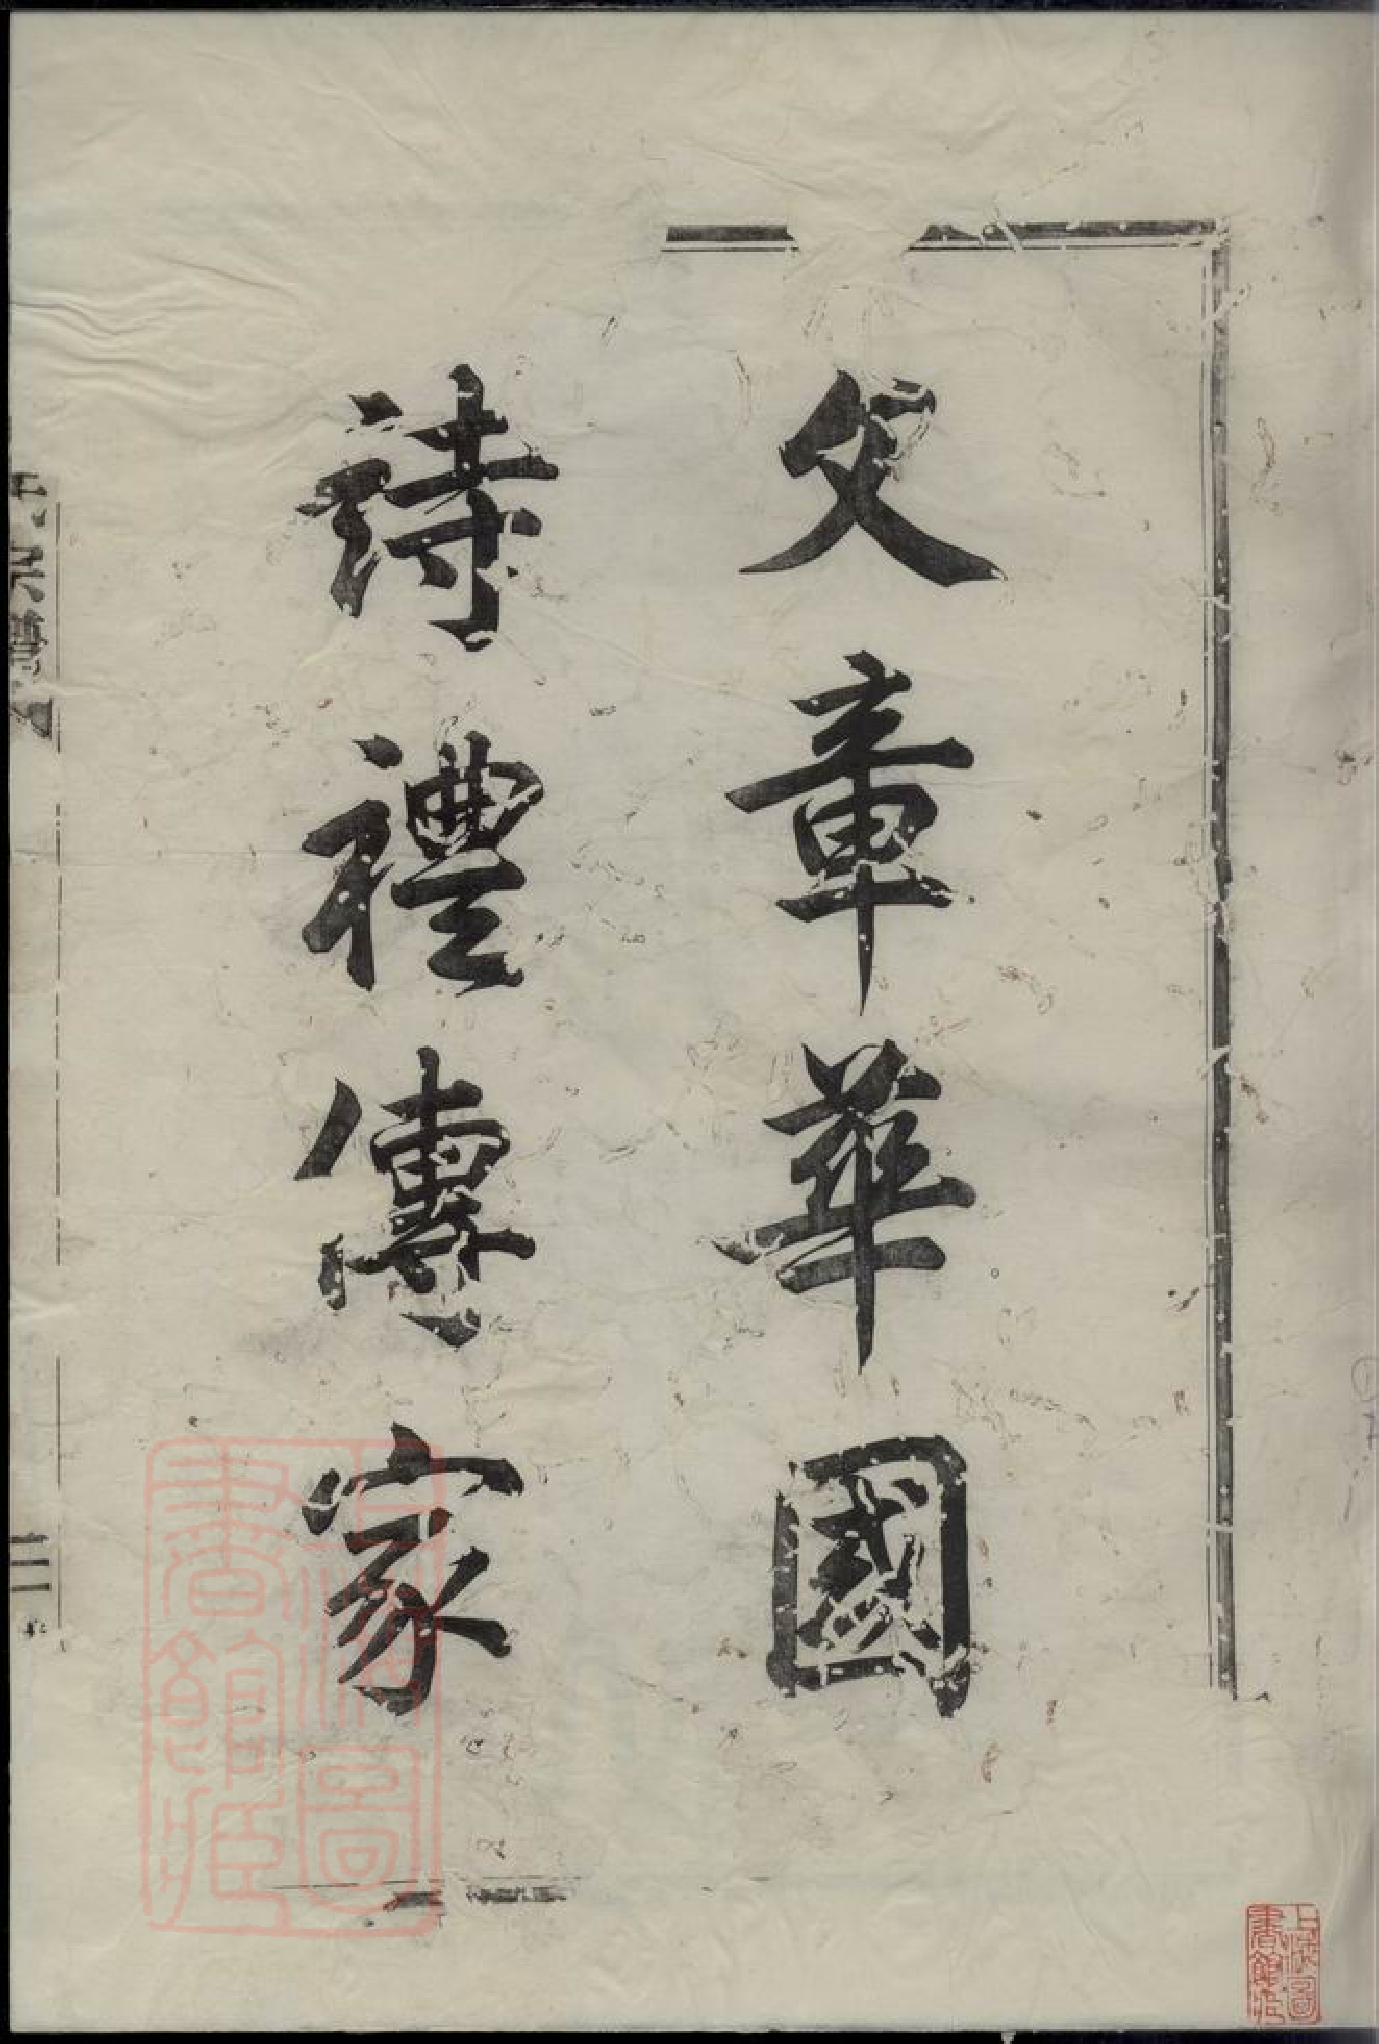 文章華國
詩禮傳家
上海圖書館藏
上海圖書館藏